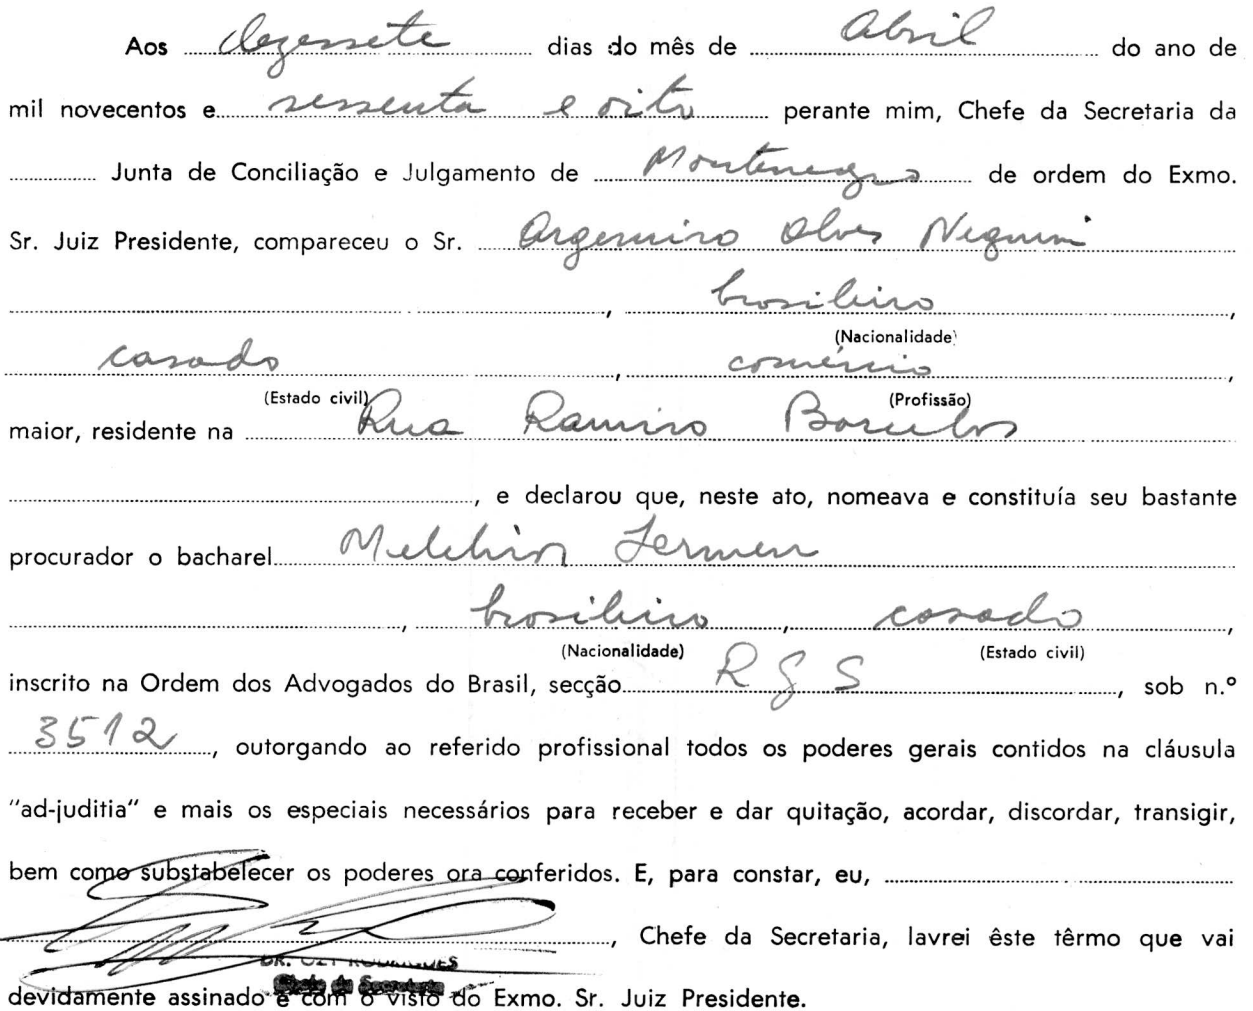 Aos dezessete dias do mês de Abril do ano de
mil novecentos e sessenta e oito perante mim, Chefe da Secretaria da
Junta de Conciliação e Julgamento de Montenegro de ordem do Exmo.
Sr. Juiz Presidente, compareceu o Sr. Argemiro Alves
, brasileiro,
(Nacionalidade)
casado, comércio,
(Estado civil) (Profissão)
maior, residente na Rua Ramiro Barcelos
, e declarou que, neste ato, nomeava e constituía seu bastante
procurador o bacharel Melchior
, brasileiro, casado,
(Nacionalidade) (Estado civil)
inscrito na Ordem dos Advogados do Brasil, secção RGS, sob n.º
3512, outorgando ao referido profissional todos os poderes gerais contidos na cláusula
"ad-juditia" e mais os especiais necessários para receber e dar quitação, acordar, discordar, transigir,
bem como substabelecer os poderes ora conferidos. E, para constar, eu,
, Chefe da Secretaria, lavrei êste têrmo que vai
DR. RODRIGUES
Chefe da Secretaria
devidamente assinado e com o visto do Exmo. Sr. Juiz Presidente.